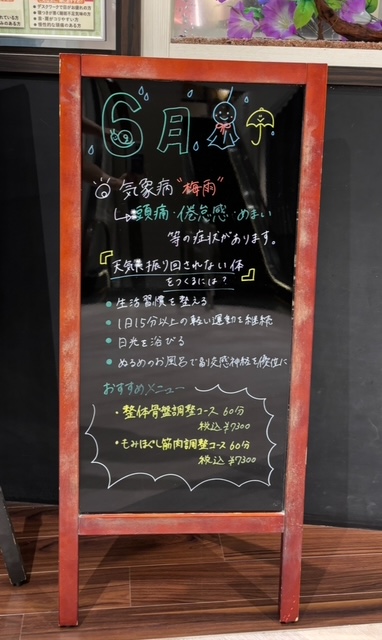 6月
気象病"梅雨"
↳頭痛・倦怠感・めまい
等の症状があります。
『天気に振り回されない体
をつくるには?』
• 生活習慣を整える
• 1日15分以上の軽い運動を継続
• 日光を浴びる
• ぬるめのお風呂で副交感神経を優位に
おすすめメニュー
・整体骨盤調整コース 60分
税込 ¥7300
・もみほぐし筋肉調整コース 60分
税込 ¥7300